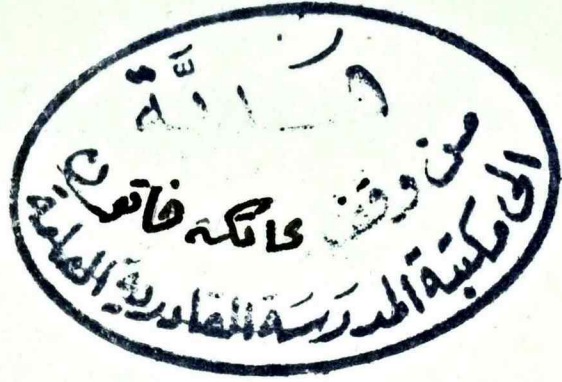 من وقف عاتكه خاتون
الى مكتبة المدرسة القادرية العلمية